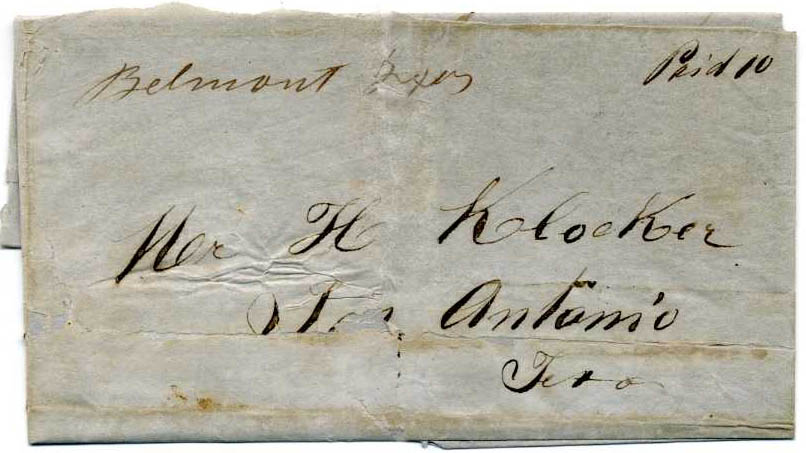 Belmont Texas
Paid 10
Mr H Klocker
San Antonio
Texa